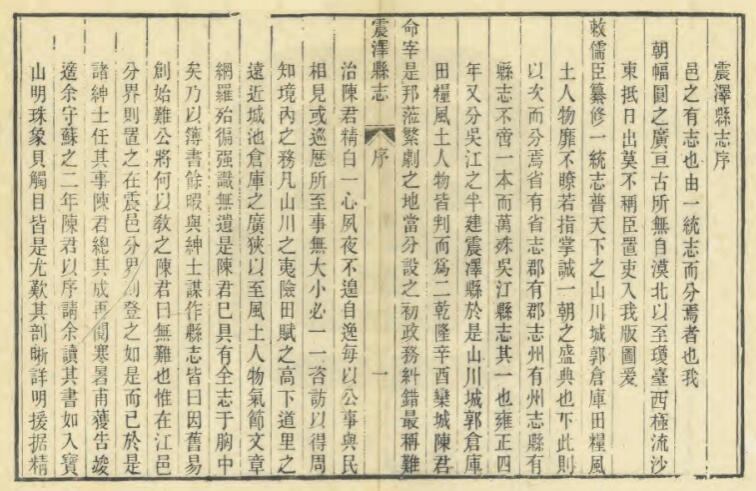 震澤縣志序
邑之有志也由一統志而分焉者也我
朝幅圓之廣亘古所無自漠北以至瓊臺西極流沙
東抵日出莫不稱臣置吏入我版圖爰
敕儒臣纂修一統志普天下之山川城郭倉庫田糧風
土人物靡不瞭若指掌誠一朝之盛典也下此則
以次而分焉省有省志郡有郡志州有州志縣有
縣志不啻一本而萬殊吳江縣志其一也雍正四
年又分吳江之半建震澤縣於是山川城郭倉庫
田糧風土人物皆判而爲二乾隆辛酉欒城陳君
命宰是邦蒞繁劇之地當分設之初政務糾錯最稱難
震澤縣志
序
一
治陳君精白一心夙夜不遑自逸每以公事與民
相見或巡歴所至事無大小必一一咨訪以得周
知境內之務凡山川之夷險田賦之高下道里之
遠近城池倉庫之廣狹以至風土人物氣節文章
網羅殆徧强識無遺是陳君已具有全志于胸中
矣乃以簿書餘暇與紳士謀作縣志皆曰因舊易
創始難公將何以敎之陳君曰無難也惟在江邑
分界則置之在震邑分界則登之如是而已於是
諸紳士任其事陳君總其成再閱寒暑甫獲告竣
適余守蘇之二年陳君以序請余讀其書如入寶
山明珠象貝觸目皆是尤歎其剖晰詳明援据精